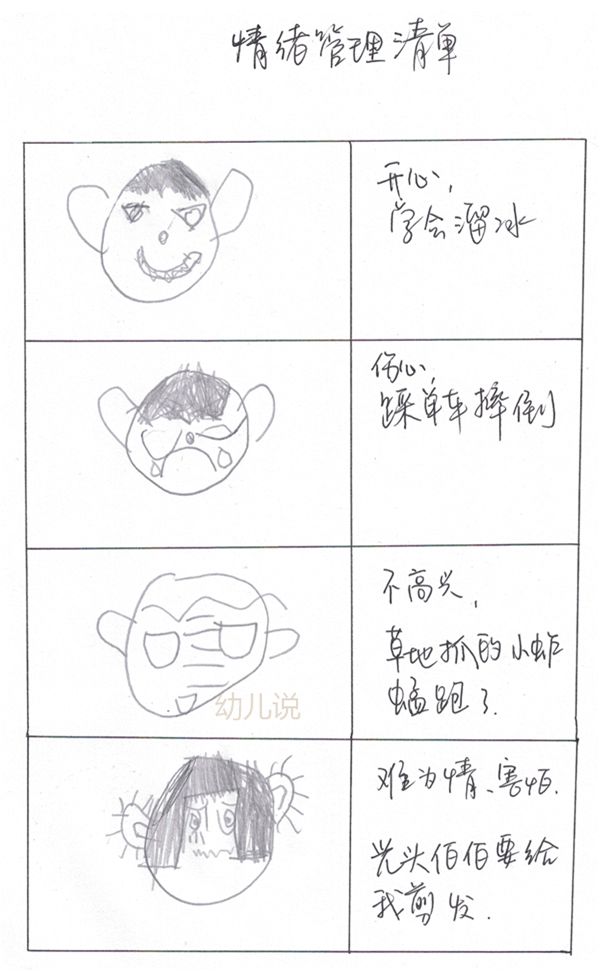 情绪管理清单
开心，
学会溜冰
伤心，
踩单车摔倒
不高兴，
草地抓的小蚱
蜢跑了.
幼儿说
难为情、害怕.
光头伯伯要给
我剪发.